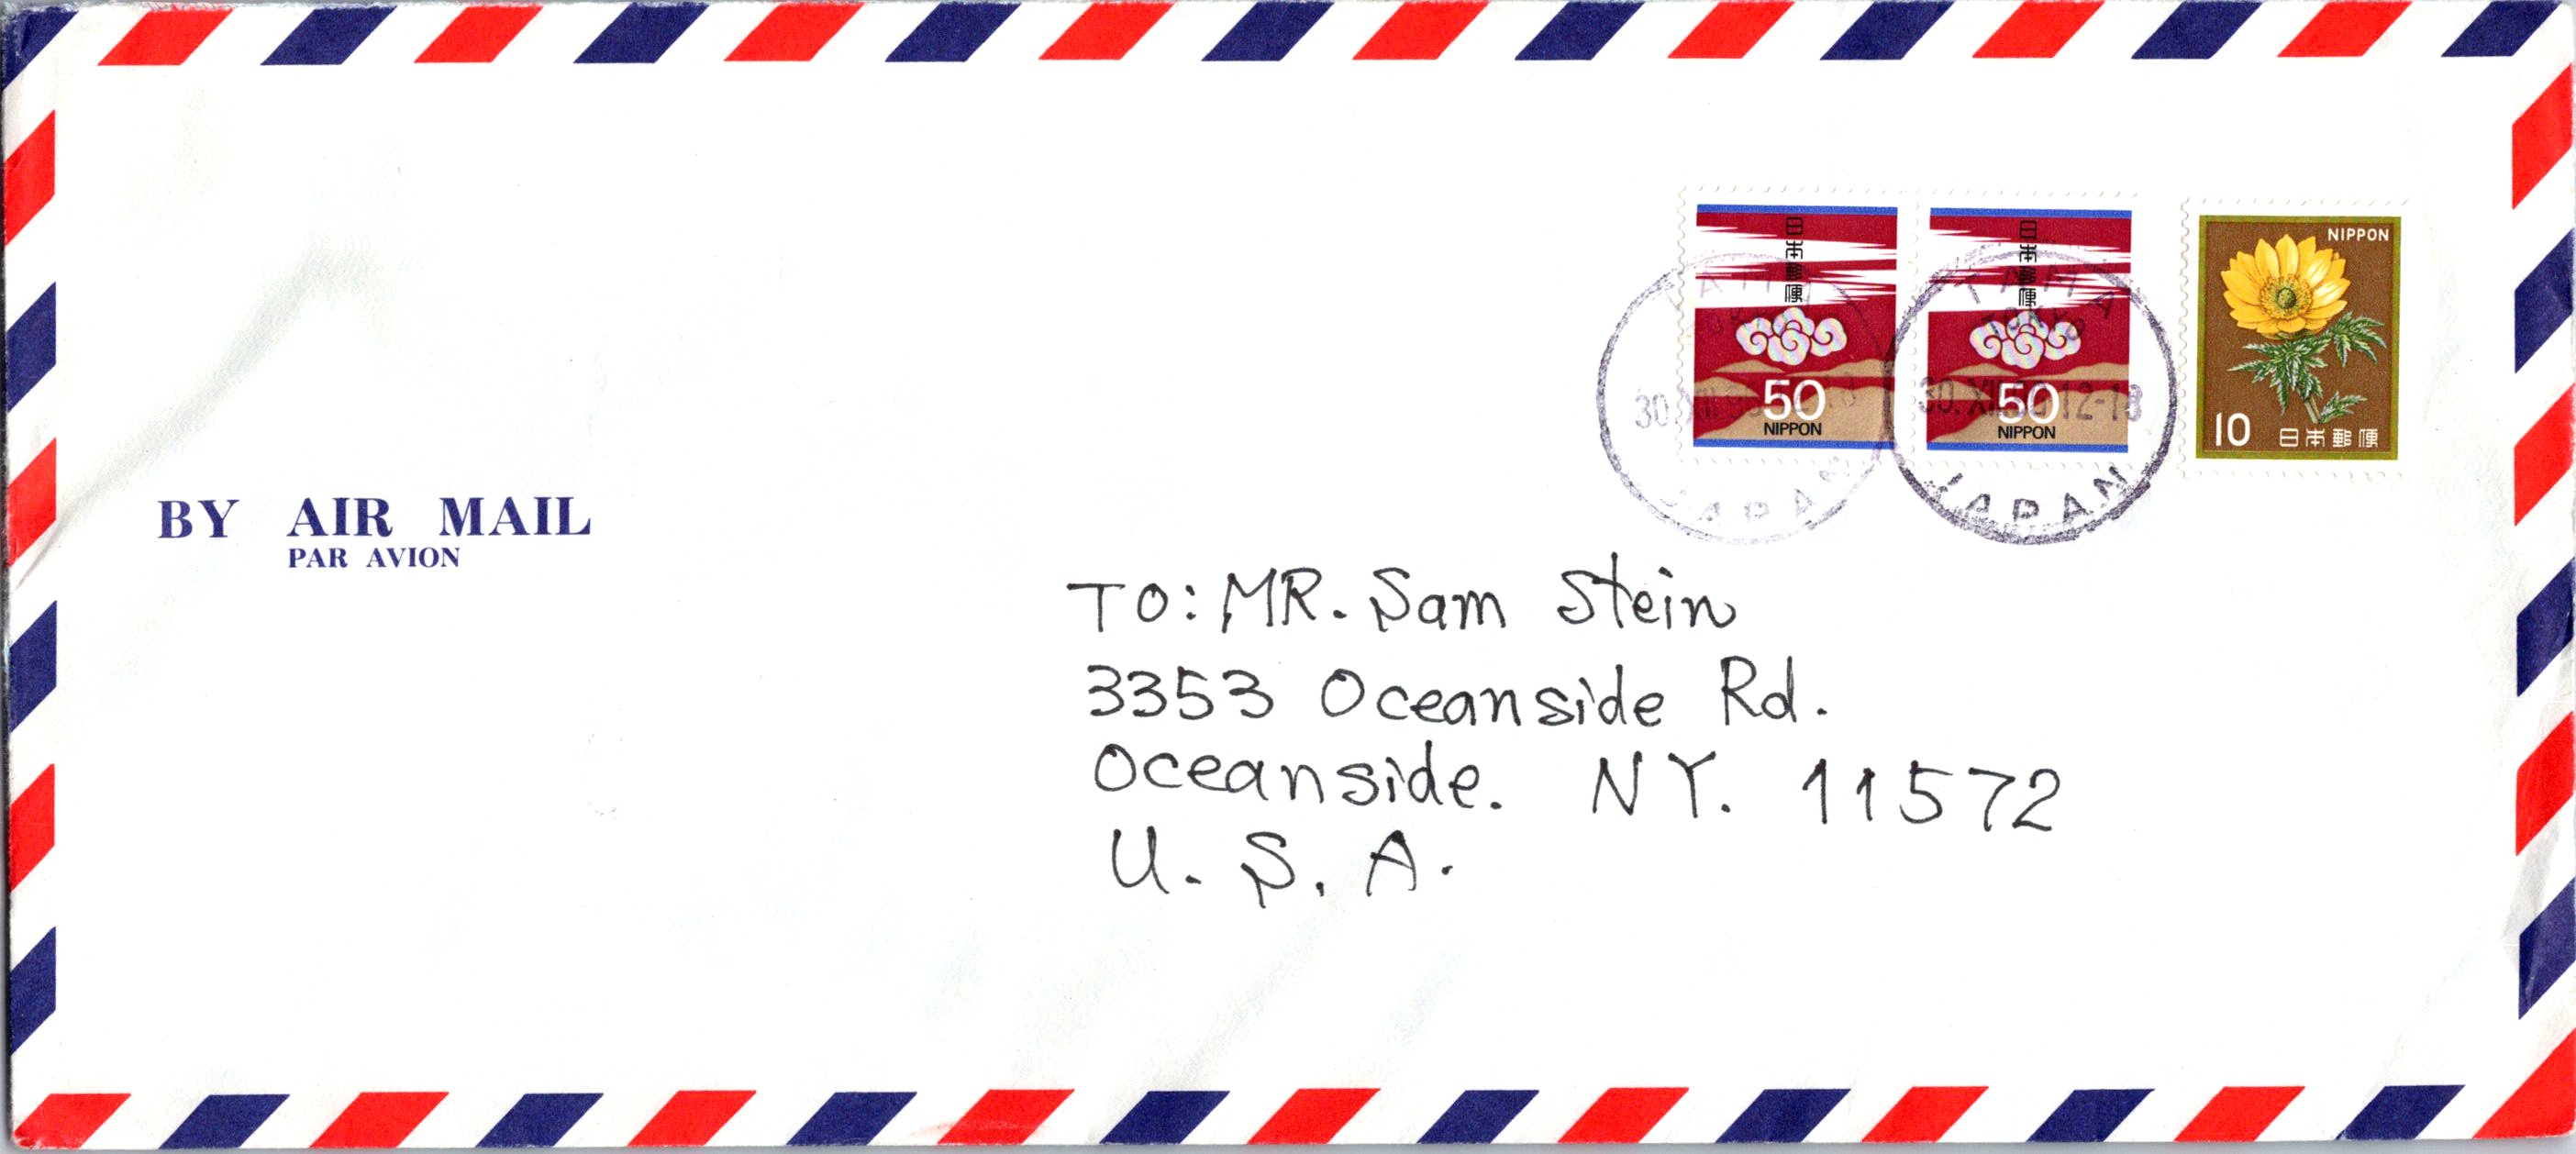 BY AIR MAIL
PAR AVION
日本郵便
50
NIPPON
日本郵便
50
NIPPON
NIPPON
10 日本郵便
TAMA
TOKYO
12-18
JAPAN
JAPAN
TO: MR. Sam Stein
3353 Oceanside Rd.
Oceanside. NY. 11572
U. S. A.